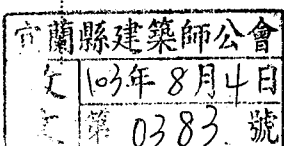 宜蘭縣建築師公會
文 103年8月4日
文 第 0383 號